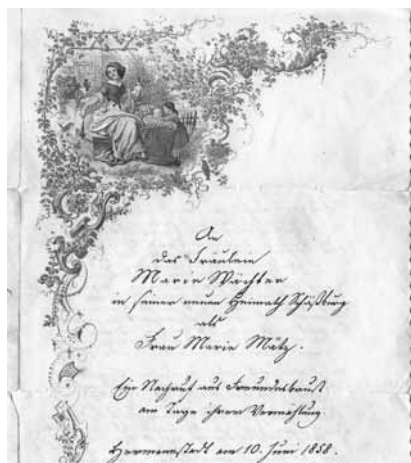 An
das Fräulein
Marie Wächter
in seiner neuen Heimath Schäßburg
als
Frau Marie Mätz.
Ein Nachruf aus Freundesbrust
am Tage ihrer Vermählung.
Hermannstadt am 10. Juni 1858.